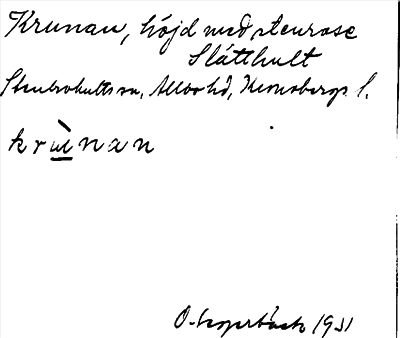 Krunan, höjd med stenrose
Slätthult
Stenbrohults sn, Allbo hd, Kronobergs l.
krùnan
1931